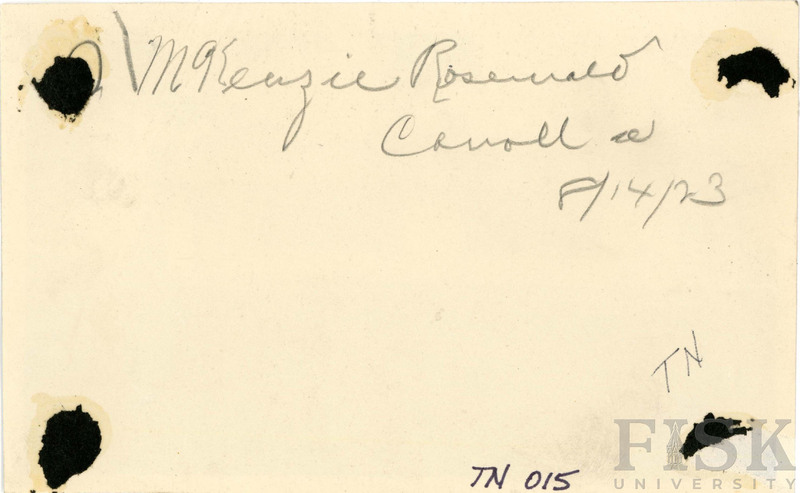 McKenzie Rosenwald
Carroll
8/14/23
TN
TN 015
FISK
UNIVERSITY